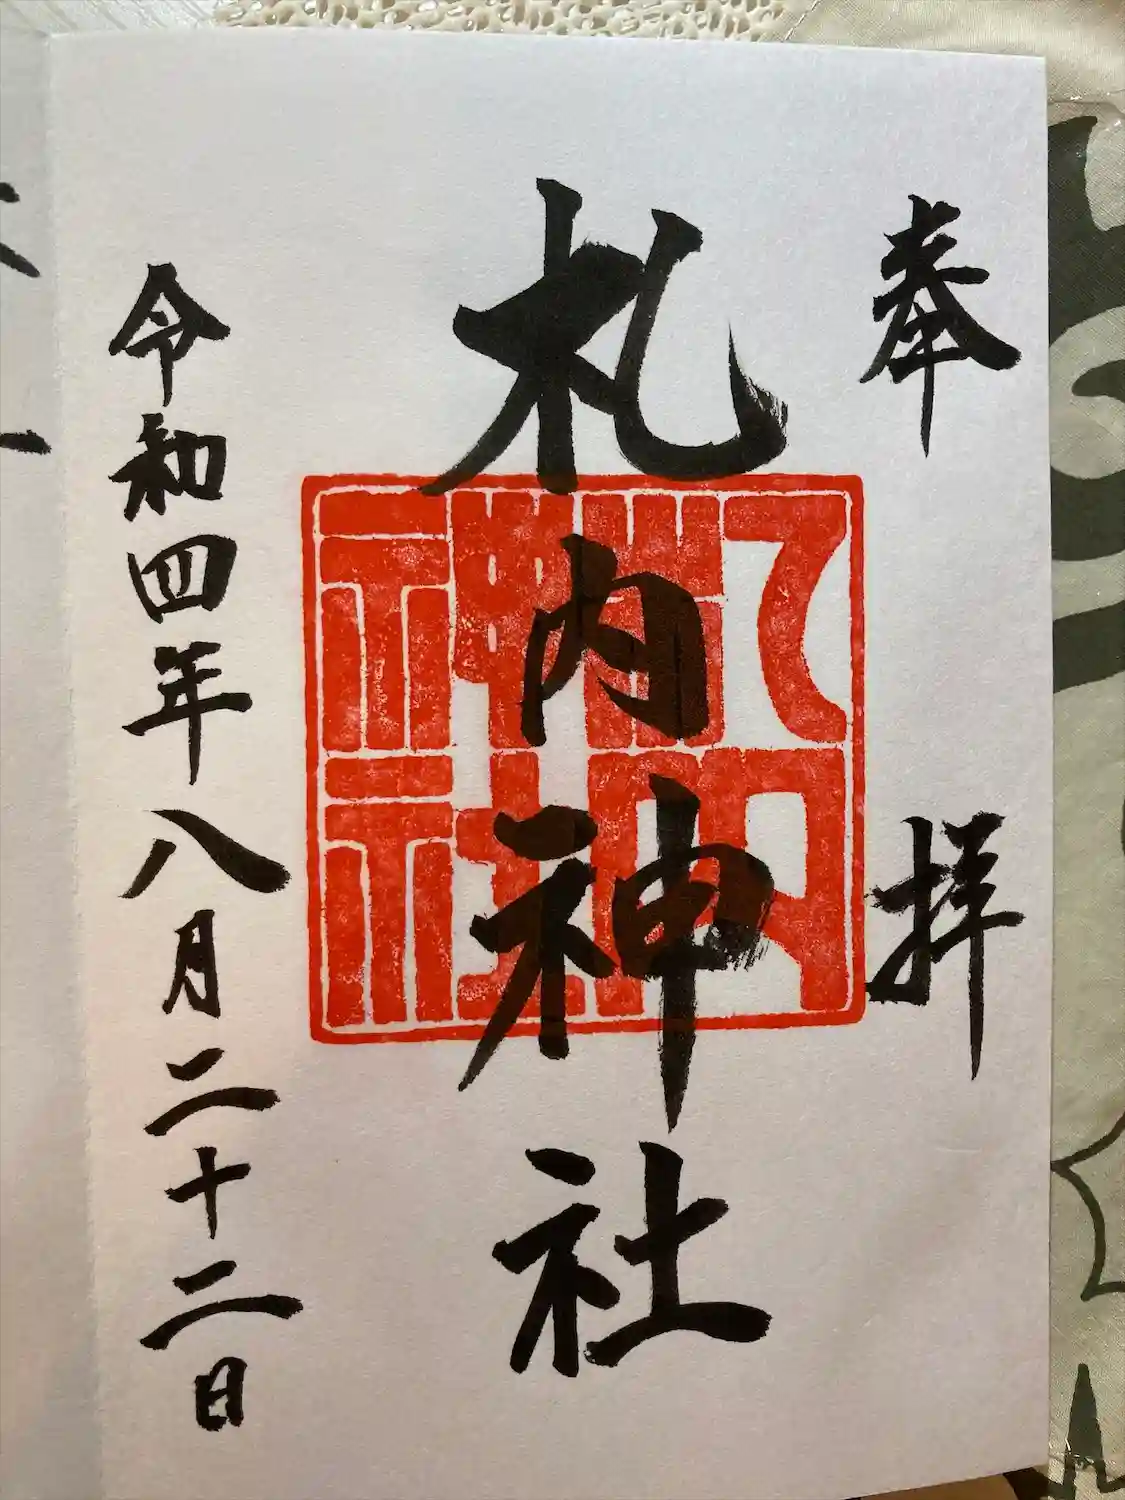 奉拝
札内神社
令和四年八月二十二日